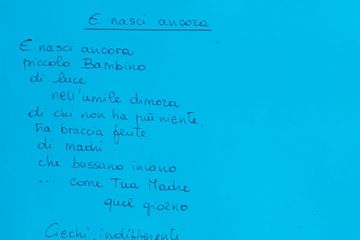 E nasci ancora
E nasci ancora
piccolo Bambino
di luce
nell'umile dimora
di chi non ha più niente,
tra braccia ferite
di madri
che bussano invano
... come Tua Madre
quel giorno
Ciechi, indifferenti